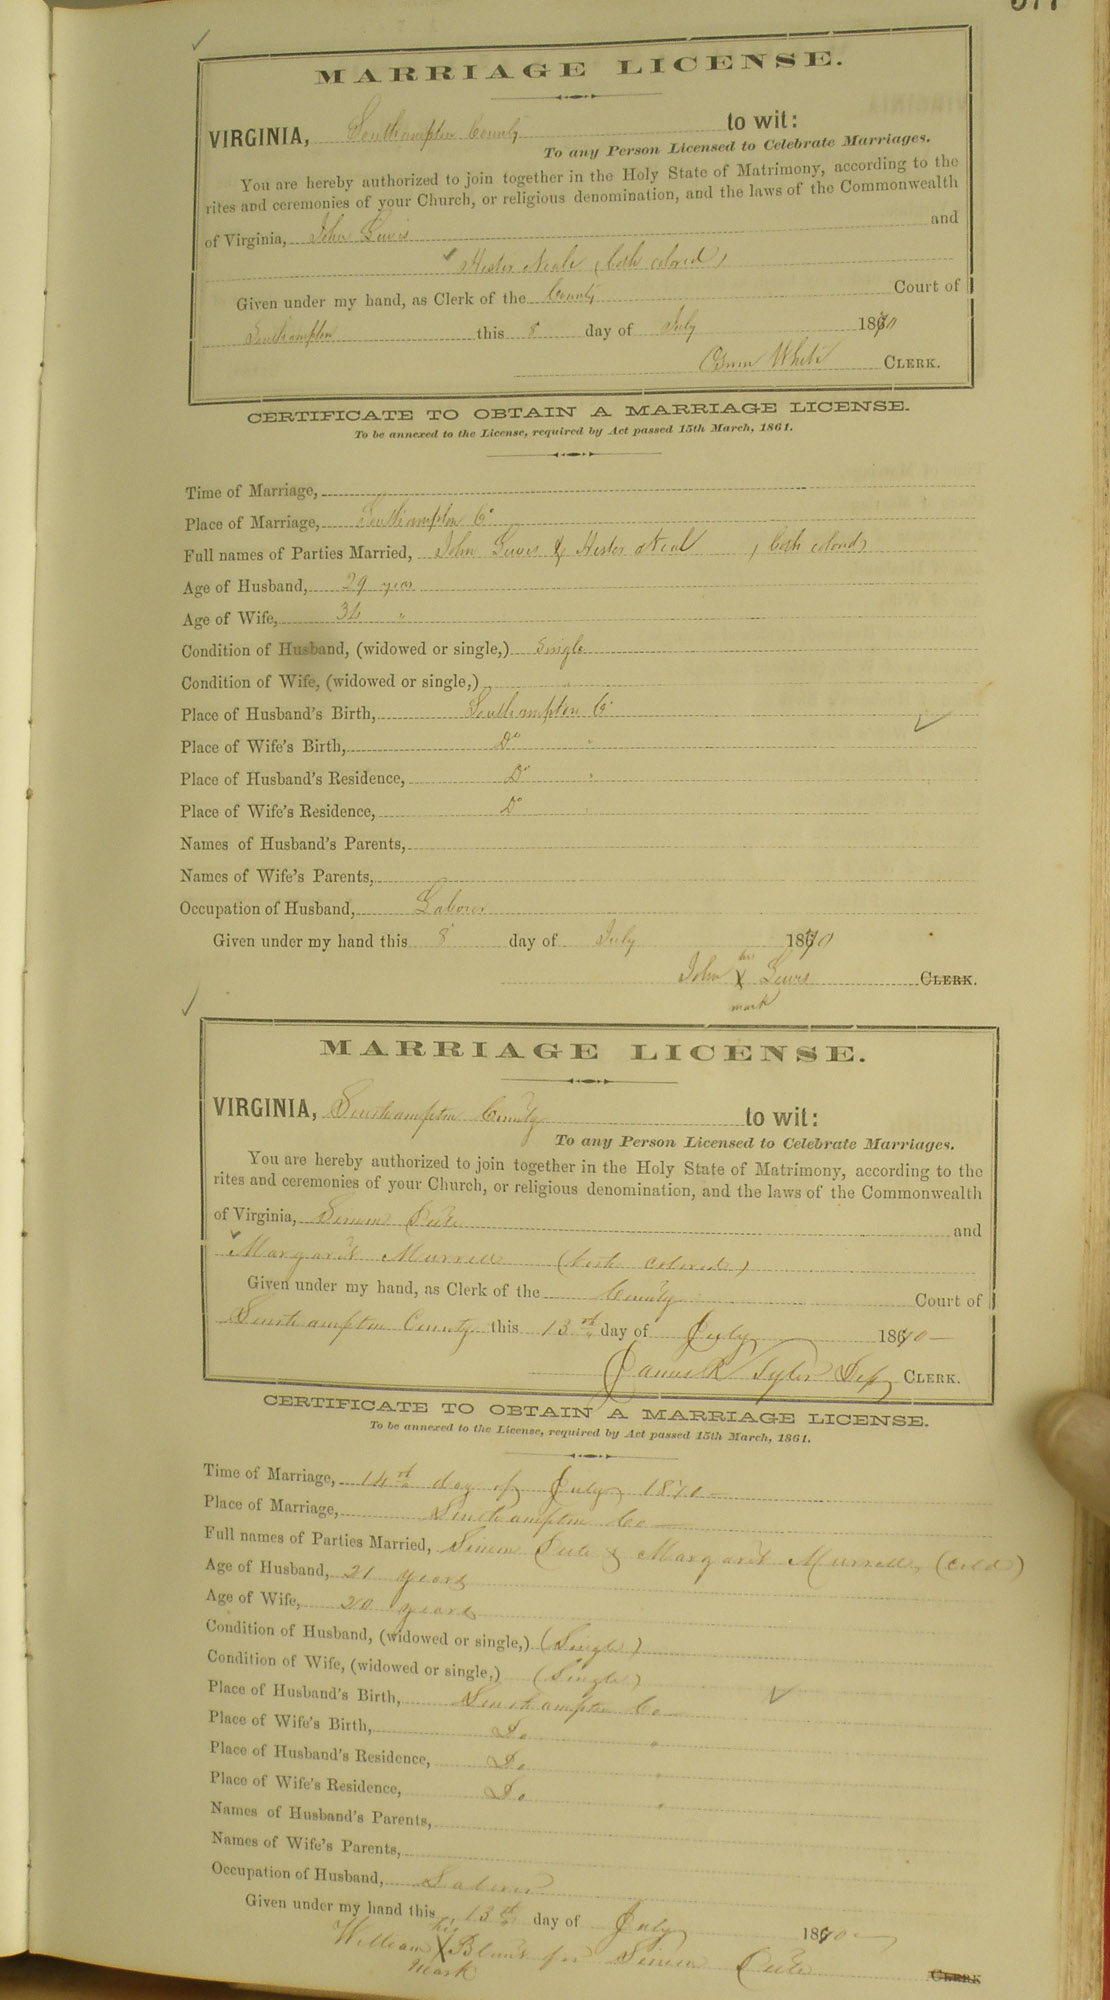 MARRIAGE LICENSE.
VIRGINIA, Southampton County to wit:
To any Person Licensed to Celebrate Marriages.
You are hereby authorized to join together in the Holy State of Matrimony, according to the
rites and ceremonies of your Church, or religious denomination, and the laws of the Commonwealth
of Virginia, John Lewis and
Hester Neale (both colored)
Given under my hand, as Clerk of the County Court of
Southampton this 8 day of July 1870
White CLERK.
CERTIFICATE TO OBTAIN A MARRIAGE LICENSE.
To be annexed to the License, required by Act passed 15th March, 1861.
Time of Marriage,
Place of Marriage, Southampton Co
Full names of Parties Married, John Lewis & Hester Neal, (both colored)
Age of Husband, 29 years
Age of Wife, "
Condition of Husband, (widowed or single,) Single
Condition of Wife, (widowed or single,) "
Place of Husband's Birth, Southampton Co
Place of Wife's Birth, Do "
Place of Husband's Residence, Do "
Place of Wife's Residence, Do "
Names of Husband's Parents,
Names of Wife's Parents,
Occupation of Husband, Laborer
Given under my hand this 8 day of July 1870
his
John X Lewis CLERK.
mark
MARRIAGE LICENSE.
VIRGINIA, Southampton County to wit:
To any Person Licensed to Celebrate Marriages.
You are hereby authorized to join together in the Holy State of Matrimony, according to the
rites and ceremonies of your Church, or religious denomination, and the laws of the Commonwealth
of Virginia, and
Margaret Murrell (both colored)
Given under my hand, as Clerk of the County Court of
Southampton County this 13th day of July 1870—
James R Tyler Dep CLERK.
CERTIFICATE TO OBTAIN A MARRIAGE LICENSE.
To be annexed to the License, required by Act passed 15th March, 1861.
Time of Marriage, 14th day of July 1870—
Place of Marriage, Southampton Co—
Full names of Parties Married, & Margaret Murrell, (cold)
Age of Husband, 21 years
Age of Wife, 20 years
Condition of Husband, (widowed or single,) (Single)
Condition of Wife, (widowed or single,) (Single)
Place of Husband's Birth, Southampton Co—
Place of Wife's Birth, Do "
Place of Husband's Residence, Do "
Place of Wife's Residence, Do "
Names of Husband's Parents,
Names of Wife's Parents,
Occupation of Husband, Laborer
Given under my hand this 13th day of July 1870—
his
William X Blunt for CLERK
mark